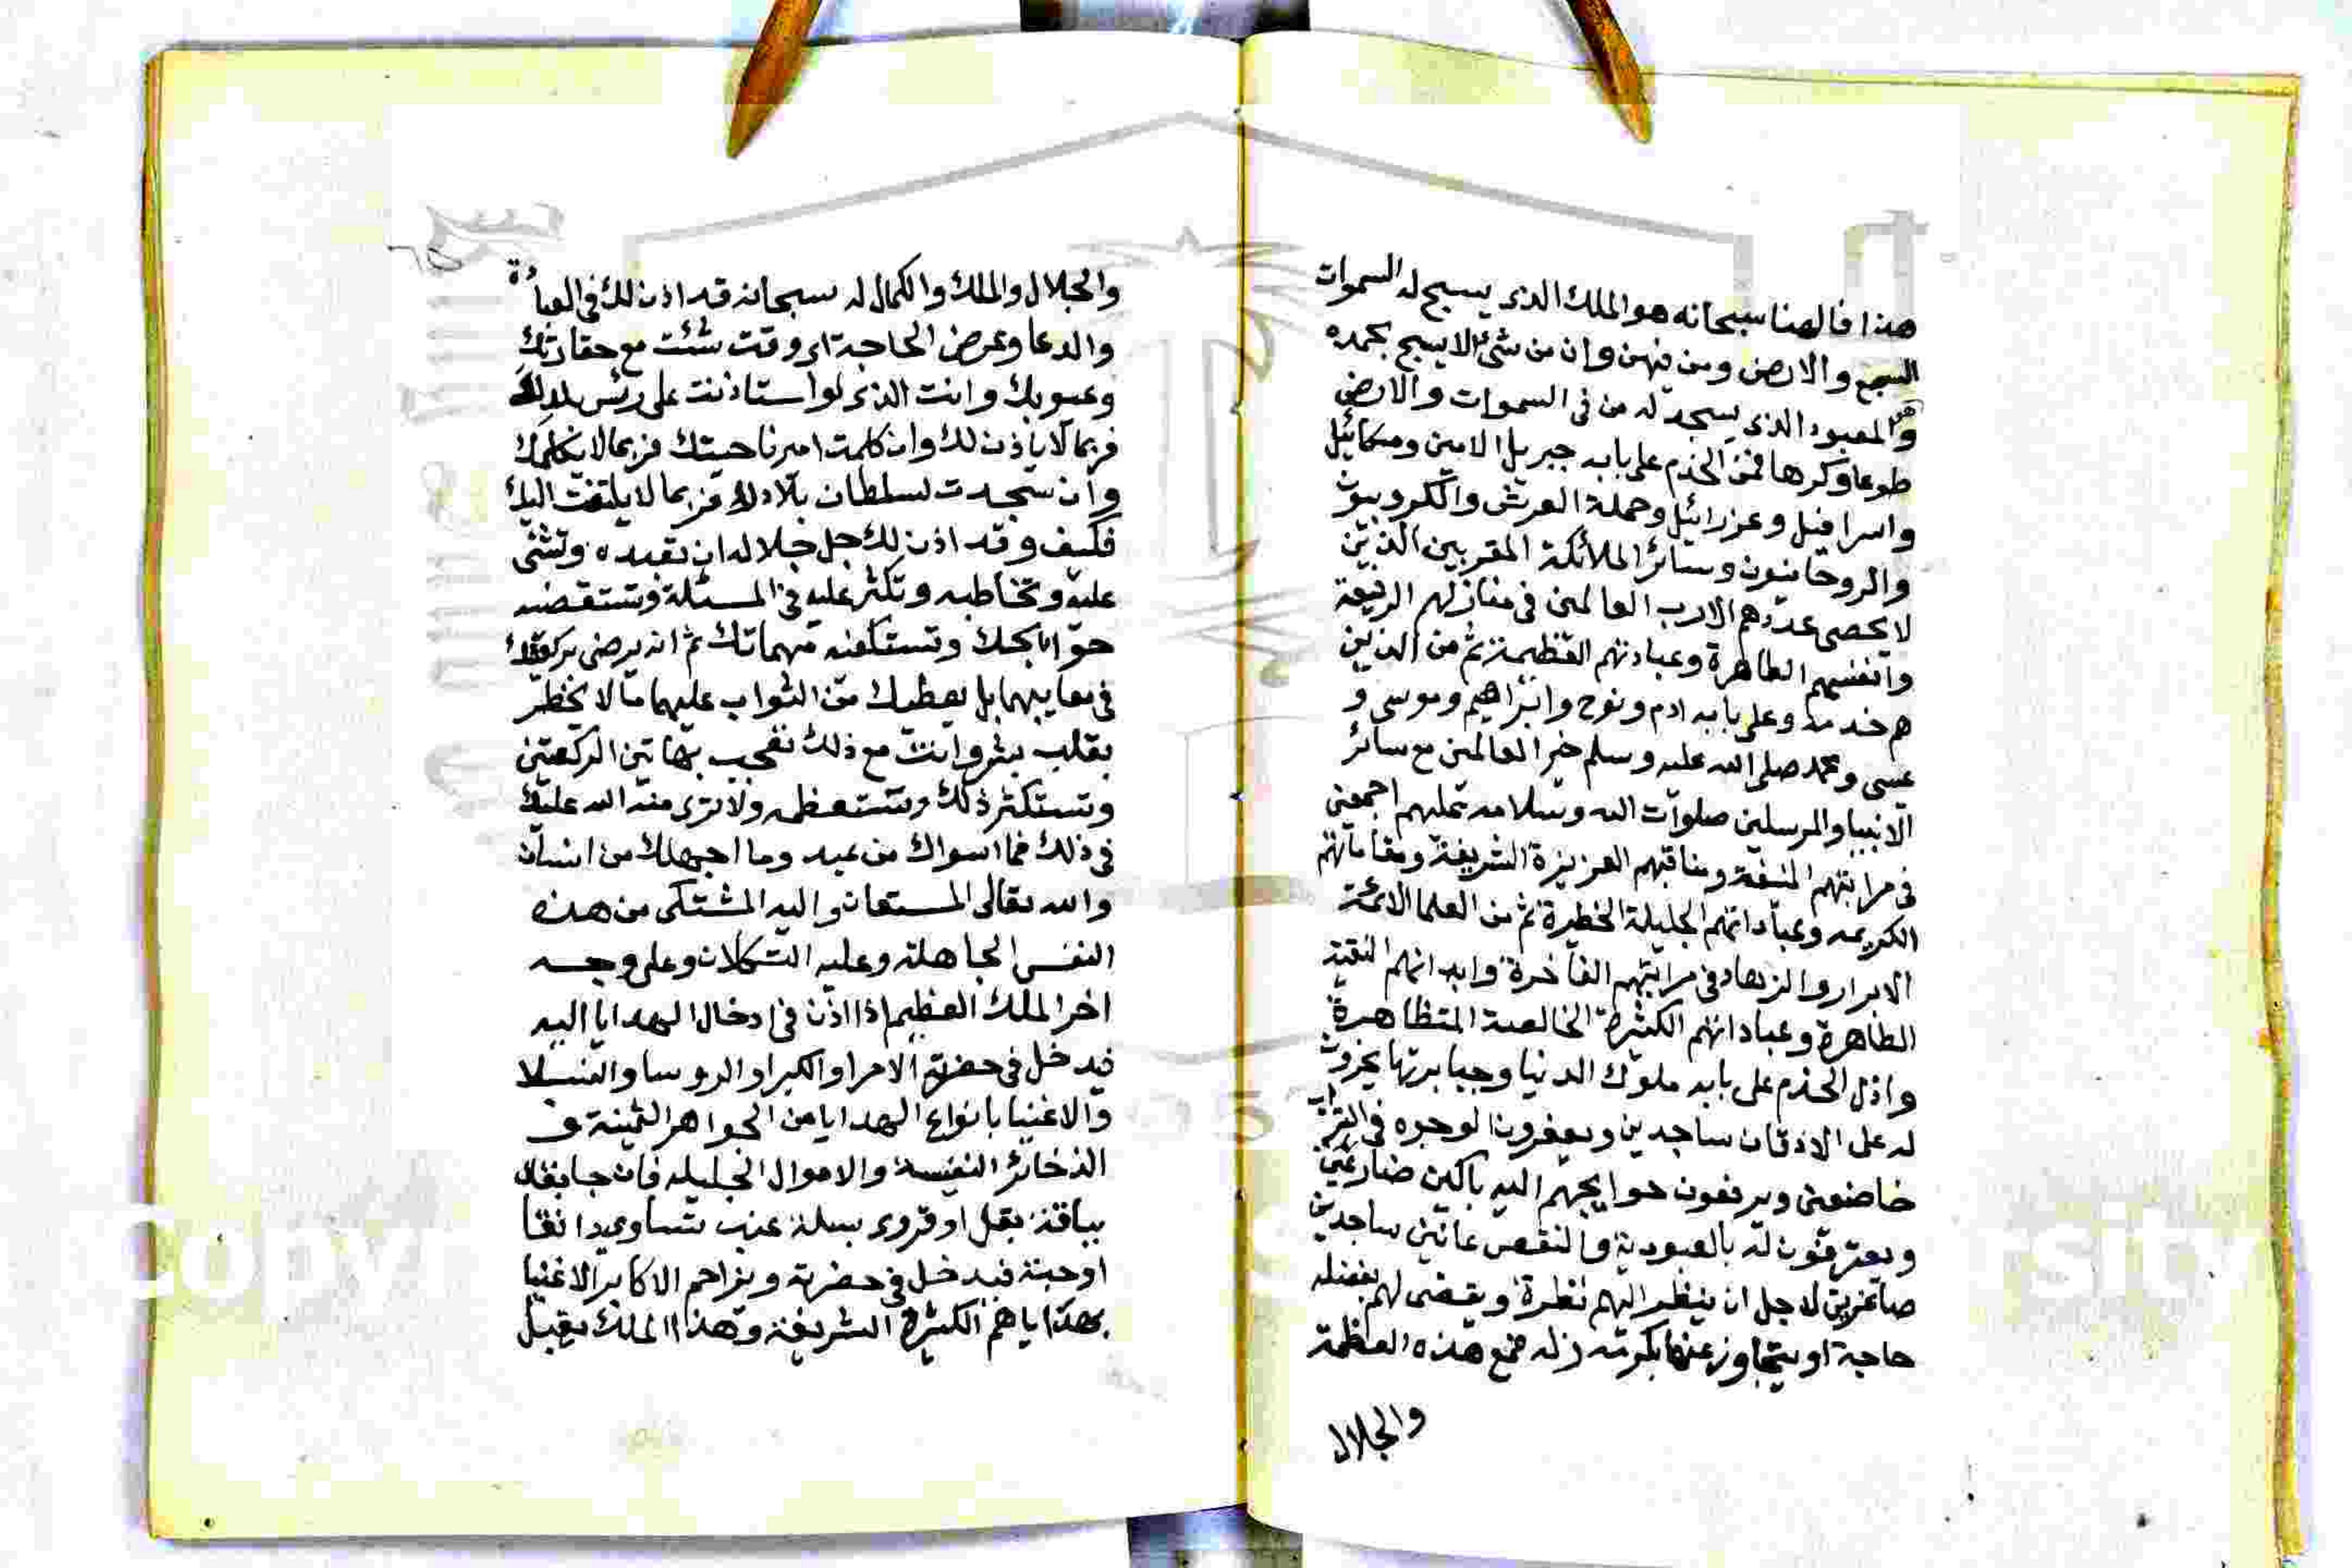 هذا فالهنا سبحانه هو الملك الذى يسبح له السموات
السبع والارض ومن فيهن وان من شئ الا يسبح بحمده
والمعبود الذى يسجد له من فى السموات والارض
طوعا وكرها فمن الخدم على بابه جبريل الامين وميكائيل
واسرافيل وعزرائيل وحملة العرش والكروبيون
والروحانيون وسائر الملائكة المقربين الذين
لا يحصى عددهم الا رب العالمين فى منازلهم الرفيعة
وانفسهم الطاهرة وعبادتهم العظيمة ثم من الذين
هم خدمه وعلى بابه ادم ونوح وابراهيم وموسى و
عيسى ومحمد صلى الله عليه وسلم خير العالمين مع سائر
الانبيا والمرسلين صلوات الله وسلامه عليهم اجمعين
فى مراتبهم المنيفة ومناقبهم العزيزة الشريفة ومقاماتهم
الكريمه وعباداتهم الجليلة الخطيرة ثم من العلما الائمة
الابرار والزهاد فى مراتبهم الفاخرة وابدانهم النقية
الطاهرة وعباداتهم الكثيرة الخالصة المتظاهرة
واذل الخدم على بابه ملوك الدنيا وجبابرتها يخرون
له على الاذقان ساجدين ويعفرون الوجوه فى التراب
خاضعين ويرفعون حوايجهم اليه باكين ضارعين
ويعترفون له بالعبودية والنقص عانين ساجدين
صاغرين لاجل ان ينظر اليهم نظرة ويقضى لهم بفضله
حاجة او يتجاوز عنها بكرمه زله فمع هذه العظمة
والجلال
والجلال والملك والكمال له سبحانه قد اذن لك فى العبادة
والدعا وعرض الحاجة اى وقت شئت مع حقارتك
وعيوبك وانت الذى لو استاذنت على رئس بلدك
فربما لا ياذن لك وان كلمت امير ناحيتك فربما لا يكلمك
وان سجدت لسلطان بلادك فربما لا يلتفت اليك
فكيف وقد اذن لك جل جلاله ان تعبده وتثنى
عليه وتخاطبه وتكثر عليه فى المسئلة وتستقضيه
حوايجك وتستكفيه مهماتك ثم انه يرضى بركعتيك
فى معايبهما بل يعطيك من الثواب عليهما ما لا يخطر
بقلب بشر وانت مع ذلك تعجب بهاتين الركعتين
وتستكثر ذلك وتستعظمه ولا ترى منة الله عليك
فى ذلك فما اسواك من عبد وما اجهلك من انسان
والله تعالى المستعان واليه المشتكى من هذه
النفس الجاهلة وعليه التكلان وعلى وجه
اخر الملك العظيم اذا اذن فى ادخال الهدايا اليه
فيدخل فى حضرته الامرا والكبرا والروسا والنبلا
والاغنيا بانواع الهدايا من الجواهر الثمينة و
الذخائر النفيسة والاموال الجليله فان جا بقال
بباقة بقل او قروى بسلة عنب تساوى دانقا
او حبة فيدخل فى حضرته ويزاحم الاكابر الاغنيا
بهداياهم الكثيرة الشريفة وهذا الملك يقبل